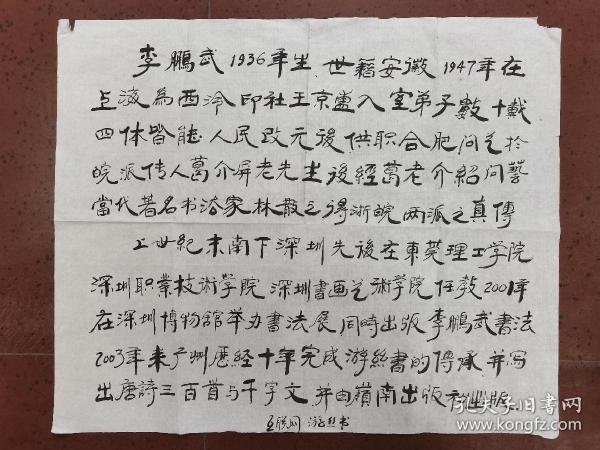 李鵬武1936年生.世籍安徽1947年在
上海為西泠印社王京盙入室弟子數十載
四体皆能.人民改元後供职合肥问艺於
皖派传人葛介屏老先生後經葛老介紹问藝
當代著名书法家林散之得浙皖两派之真傳
上世紀末南下深圳先後在東莞理工学院
深圳职業技術学院深圳書画艺術学院任教2001年
在深圳博物舘举办書法展.同時出版李鵬武書法
2003年来广州歷经十年完成游絲書的傳承.并写
出唐詩三百首与千字文.并由嶺南出版社出版.
互联网 游丝书
孔夫子旧书网
kongfz.com